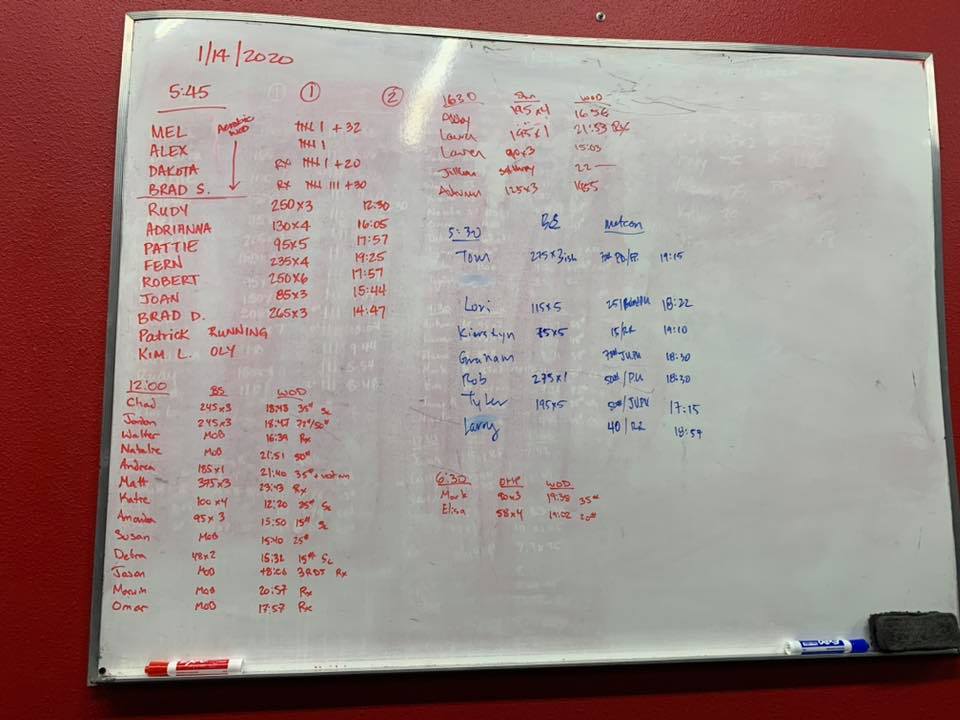 1/14/2020
5:45 ① ②
Aerobic WOD
MEL 𝍸 I + 32
ALEX 𝍸 I
DAKOTA RX 𝍸 I + 20
BRAD S. RX 𝍸 III + 30
RUDY 250 x 3 12:30
ADRIANNA 130 x 4 16:05
PATTIE 95 x 5 17:57
FERN 235 x 4 19:25
ROBERT 250 x 6 17:57
JOAN 85 x 3 15:44
BRAD D. 265 x 3 14:47
Patrick RUNNING
KIM L. OLY
12:00 BS WOD
Chad 245 x 3 18:48 35# Sc
Jordan 245 x 3 18:47 72#/50#
Walter MOB 16:39 Rx
Natalie MOB 21:51 50#
Andrea 185 x 1 21:40 35#
Matt 375 x 3 23:43 Rx
Katie 100 x 4 12:20 25# Sc
Amanda 95 x 3 15:50 15# Sc
Susan MOB 15:40 25#
Debra 48 x 2 15:32 15# Sc
Jason MOB 3RDS Rx
Marvin MOB 20:57 Rx
Omar MOB 17:57 Rx
1630 WOD
Ashby 195 x 4 16:56
Lauren 195 x 1 21:53 Rx
Lauren 90 x 3 15:03
Jillian 22
Autumn 125 x 3
5:30 BS metcon
Tom 275 x 3ish 19:15
Lori 115 x 5 18:22
Kierstyn 75 x 5 15/RR 19:10
Graham JUPU 18:30
Rob 275 x 1 50#/PU 18:30
Tyler 195 x 5 50#/JUPU 17:15
Larry 40/RR 18:57
6:30 WOD
Mark 80 x 3 19:38 35#
Elisa 58 x 4 19:02 20#
EXPO